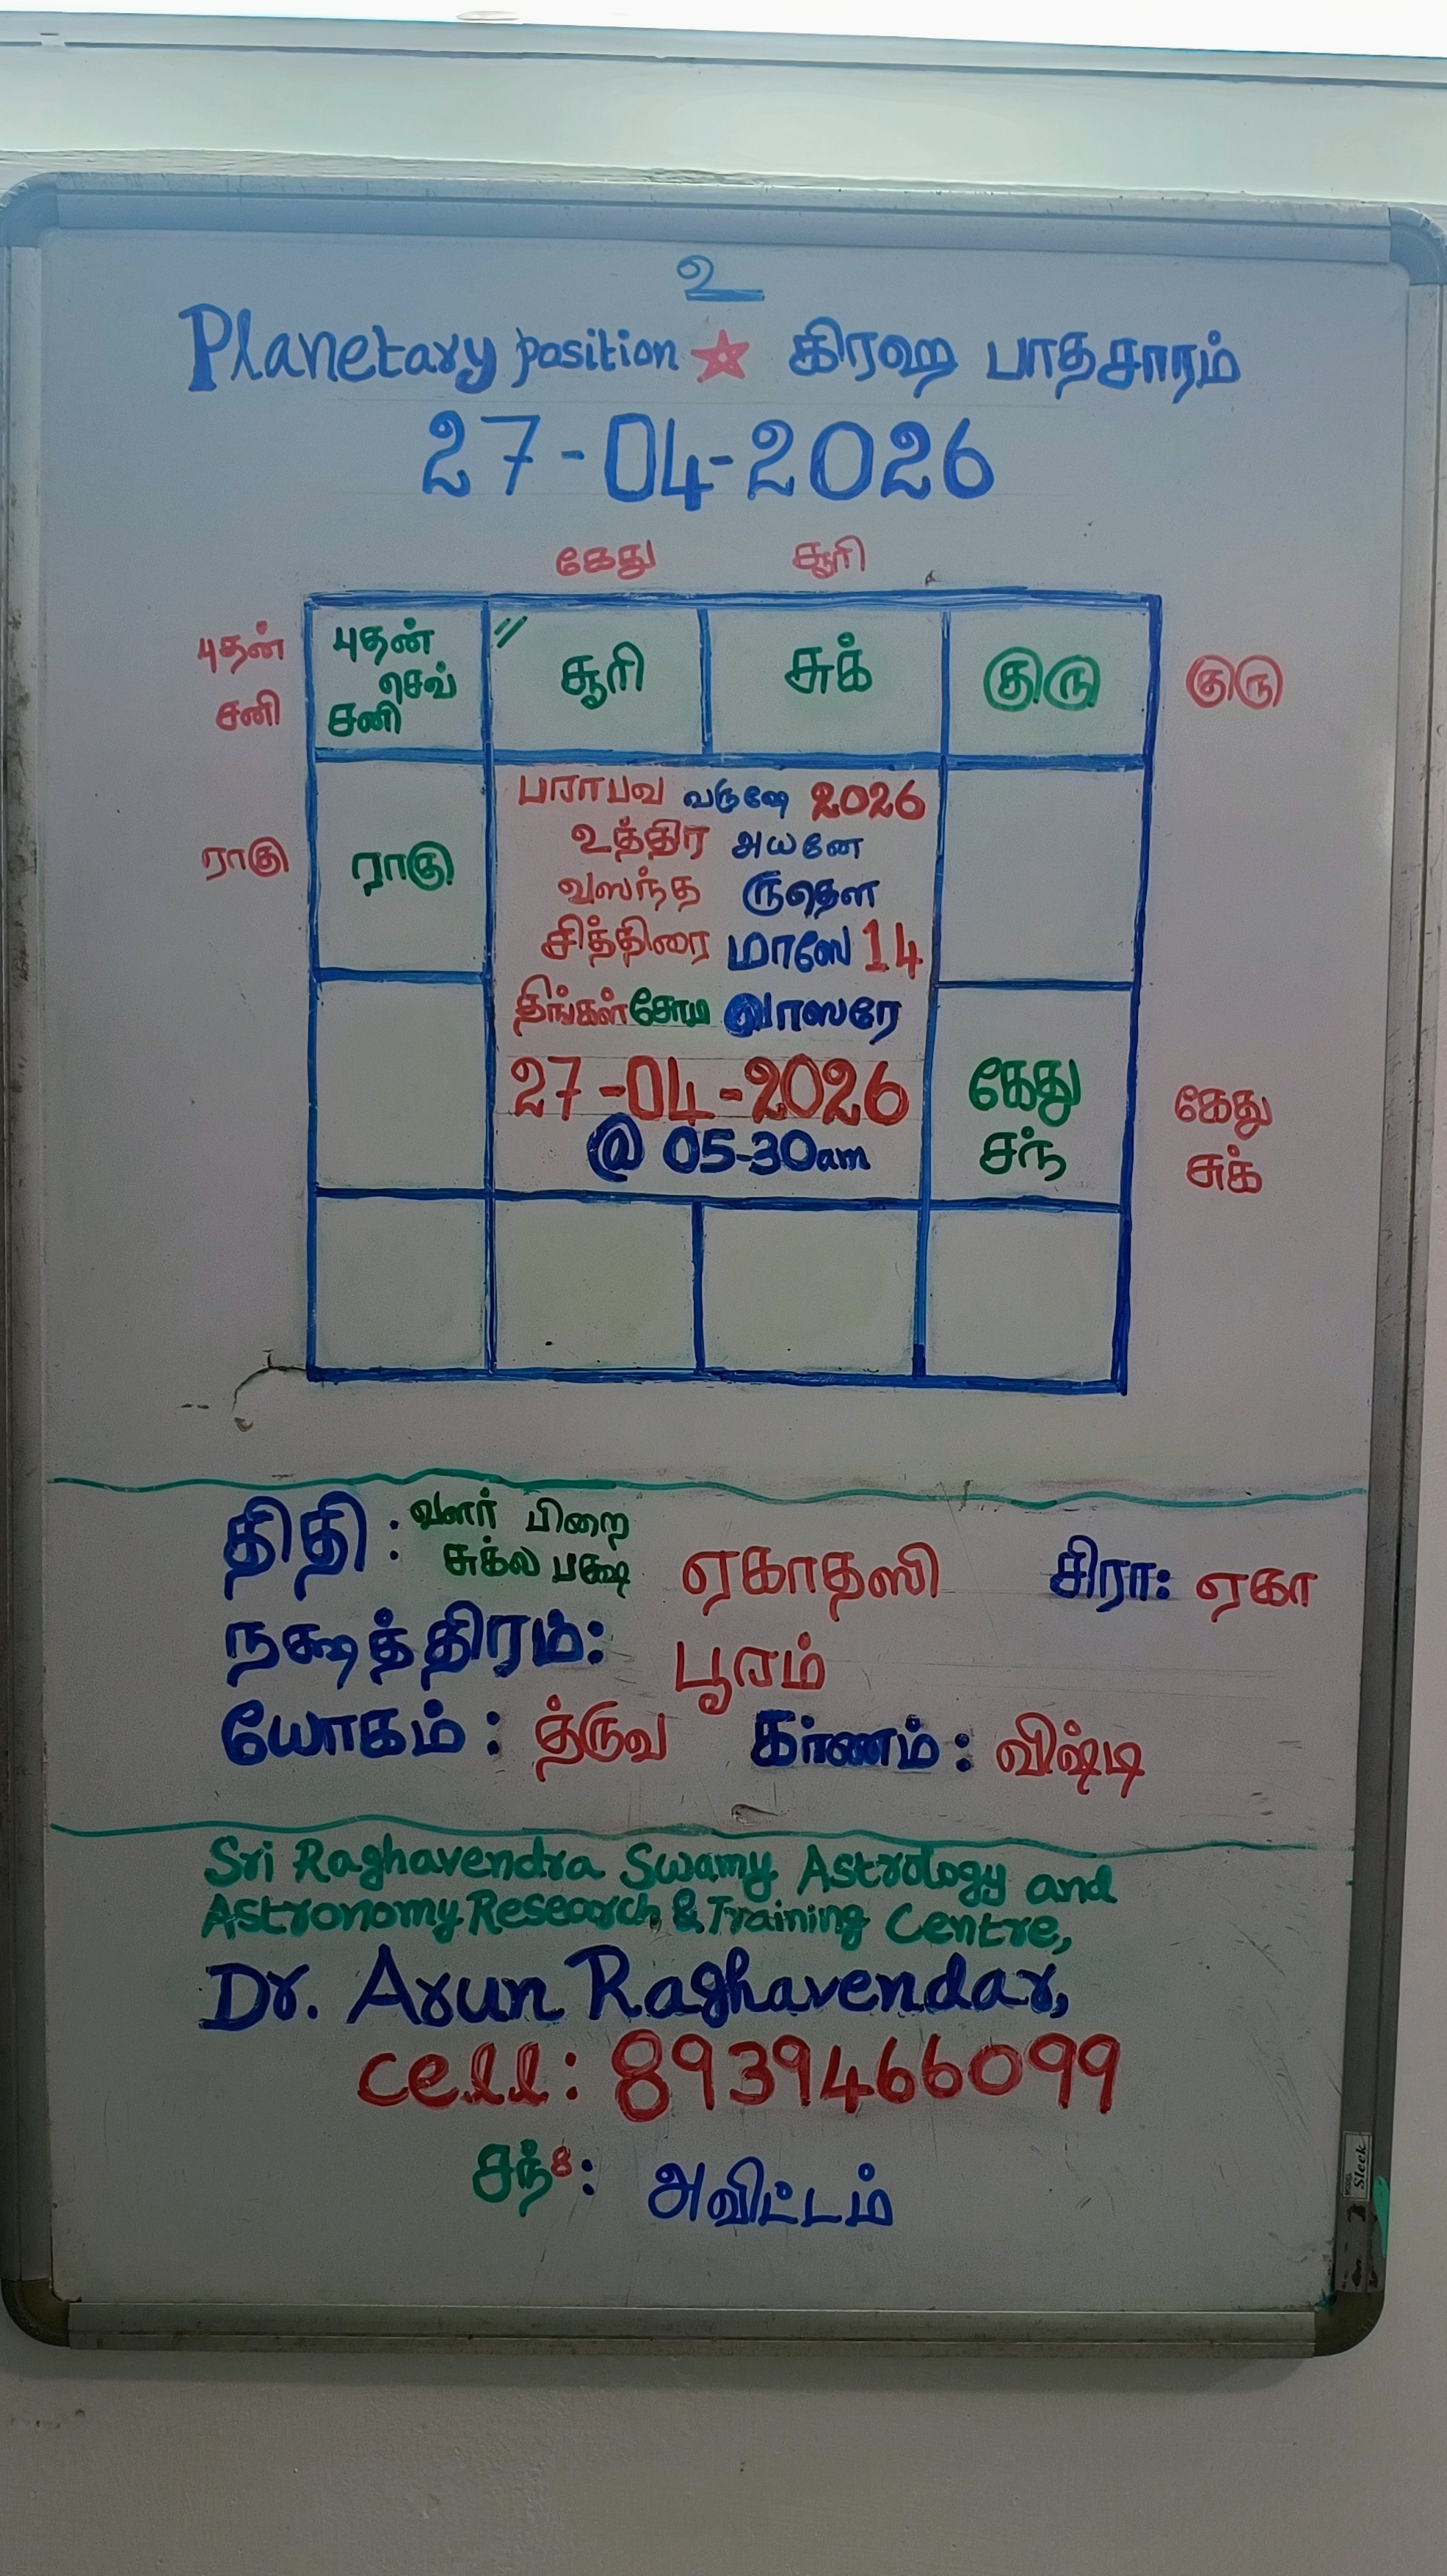 உ
Planetary position ☆ கிரஹ பாதசாரம்
27-04-2026
கேது சூரி
புதன் புதன் சூரி சுக் குரு குரு
செவ்
சனி சனி
பராபவ வருஷே 2026
உத்திர அயனே
ராகு ராகு வஸந்த ருதௌ
சித்திரை மாஸே 14
திங்கள் சோம வாஸரே
27-04-2026 கேது கேது
@ 05-30am சந் சுக்
திதி : வளர் பிறை
சுக்ல பக்ஷ ஏகாதஸி சிரா: ஏகா
நக்ஷத்திரம்: பூரம்
யோகம் : த்ருவ கர்ணம் : விஷ்டி
Sri Raghavendra Swamy Astrology and
Astronomy Research & Training Centre,
Dr. Arun Raghavendar,
cell: 8939466099
சந்8: அவிட்டம்
Sleek